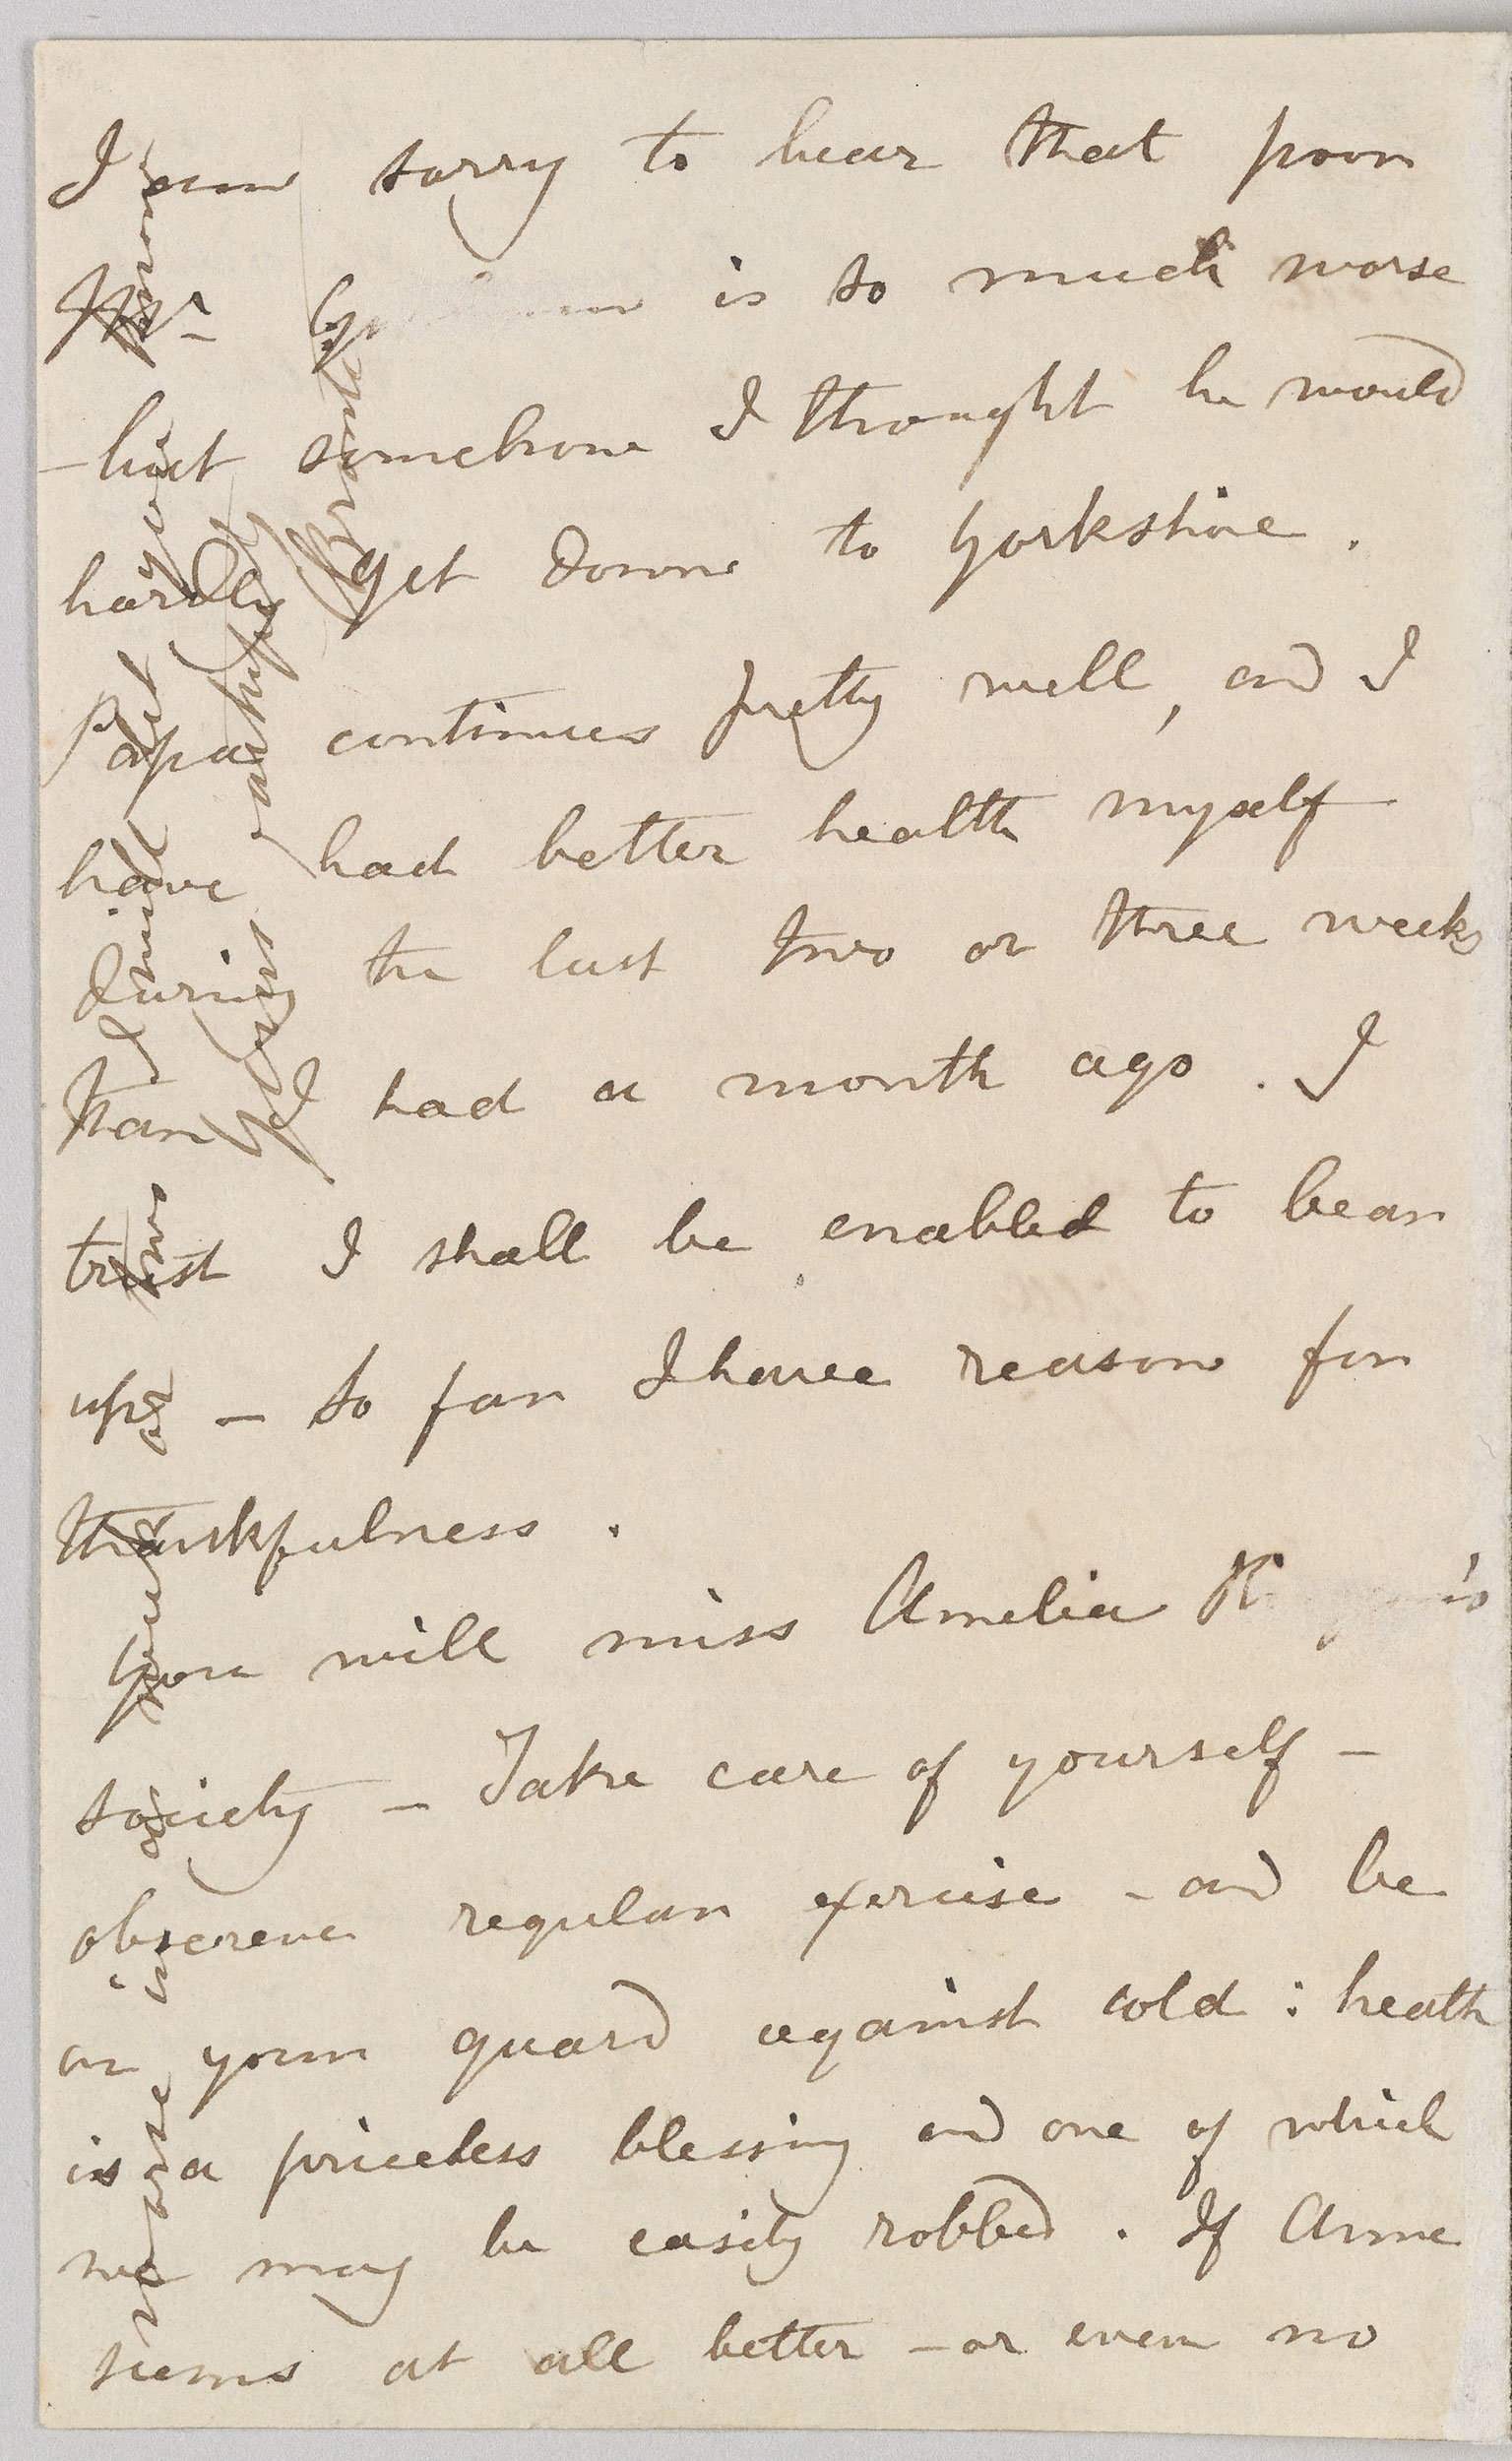 I am sorry to hear that poor
Mr is so much worse
– but somehow I thought he would
hardly get down to Yorkshire .
Papa continues pretty well, and I
have had better health myself
during the last two or three weeks
than I had a month ago . I
trust I shall be enabled to bear
up – so far I have reason for
thankfulness .
You will miss Amelia
society – Take care of yourself –
observe regular exercise – and be
on your guard against cold : heath
is a priceless blessing and one of which
we may be easily robbed . If Anne
seems at all better – or even no
worse in a or two I will let you know
Yours faithfully
C Brontë